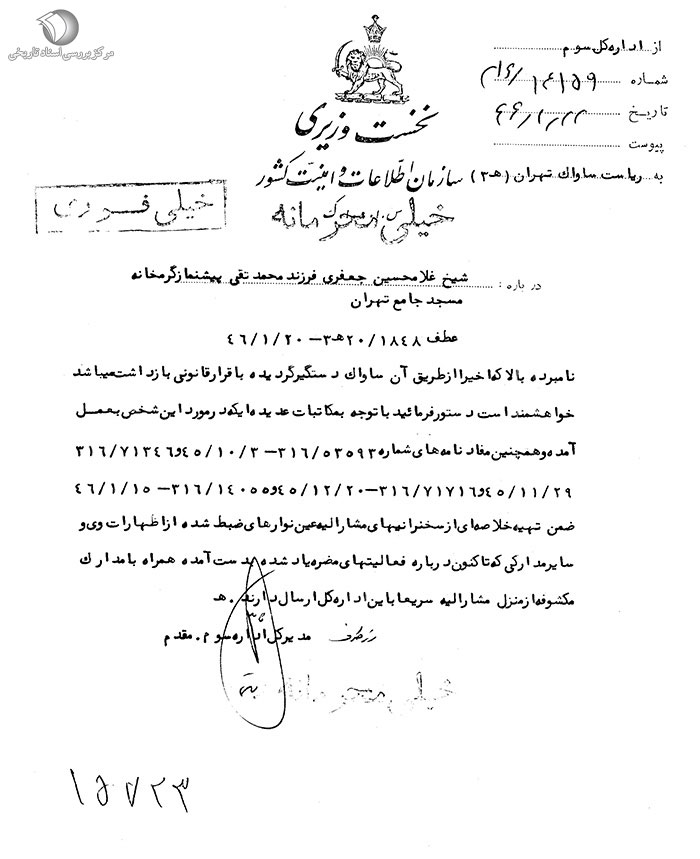 مرکز بررسی اسناد تاریخی
از اداره کل سوم
شماره ۳۱۶/۱۴۱۵۹
تاریخ
پیوست
نخست وزیری
سازمان اطلاعات و امنیت کشور
به ریاست ساواک تهران (ه‍ ۳)
خیلی محرمانه
خیلی فوری
درباره : شیخ غلامحسین جعفری فرزند محمد تقی پیشنماز گرمخانه
مسجد جامع تهران
عطف ۲۰/۱۸۴۸ه‍۳ – ۴۶/۱/۲۰
نامبرده بالا که اخیرا از طریق آن ساواک دستگیر گردیده با قرار قانونی بازداشت میباشد
خواهشمند است دستور فرمائید با توجه بمکاتبات عدیده ایکه در مورد این شخص بعمل
آمده و همچنین مفاد نامه های شماره ۳۱۶/۵۳۵۹۳ – ۴۵/۱۰/۳ و ۳۱۶/۷۱۳۴۶
۴۵/۱۱/۲۹ و ۳۱۶/۷۱۷۱۶ – ۴۵/۱۲/۲۰ و ۳۱۶/۱۴۰۵۵ – ۴۶/۱/۱۵
ضمن تهیه خلاصه ای از سخنرانیهای مشارالیه عین نوارهای ضبط شده از اظهارات وی و
سایر مدارکی که تاکنون درباره فعالیتهای مضره یاد شده بدست آمده همراه با مدارک
مکشوفه از منزل مشارالیه سریعا باین اداره کل ارسال دارند . ه‍
مدیر کل اداره سوم . مقدم
از طرف
خیلی محرمانه
۱۵۷۲۳